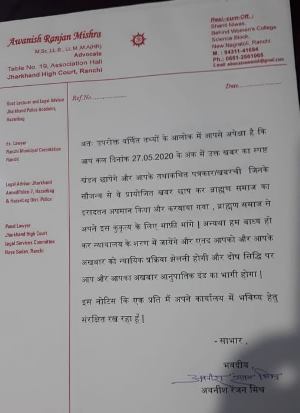 Awanish Ranjan Mishra
M.Sc., LL.B., LL.M., M.A(HR)
Advocate
Table No. 19, Association Hall
Jharkhand High Court, Ranchi
Resi.-cum-Off.:
Shanti Niwas,
Behind Women's College
Science Block,
New Nagratoli, Ranchi
Ref.No.
Date
Guest Lecturer and Legal Advisor
Jharkhand Police Academy,
Hazaribag
Ex. Lawyer
Ranchi Municipal Corporation
Ranchi
Legal Advisor Jharkhand
Armed Police 7, Hazaribag
& Hazaribag Dist. Police
Panel Lawyer
Jharkhand High Court
Legal Services Committee
Nyay Sadan, Ranchi
अतः उपरोक्त वर्णित तथ्यों के आलोक में आपसे अपेक्षा है कि
आप कल दिनांक 27.05.2020 के अंक में उक्त खबर का स्पष्ट
खंडन छापेंगे और आपके तथाकथित पत्रकार/खबरची जिनके
सौजन्य से ये प्रायोजित खबर छाप कर ब्राह्मण समाज का
इरादतन अपमान किया और करवाया गया , ब्राह्मण समाज से
अपने इस कुकृत्य के लिए माफी मांगे | अन्यथा हम बाध्य हो
कर न्यायालय के शरण में जायेंगे और एतद आपको और आपके
अखबार को न्यायिक प्रक्रिया झेलनी होगी और दोष सिद्धि पर
आप और आपका अखबार आनुपातिक दंड का भागी होगा |
इस नोटिस कि एक प्रति मैं अपने कार्यालय में भविष्य हेतु
संरक्षित रख रहा हूँ |
- साभार .
भवदीय
अवनीश रंजन मिश्र
अवनीश रंजन मिश्र